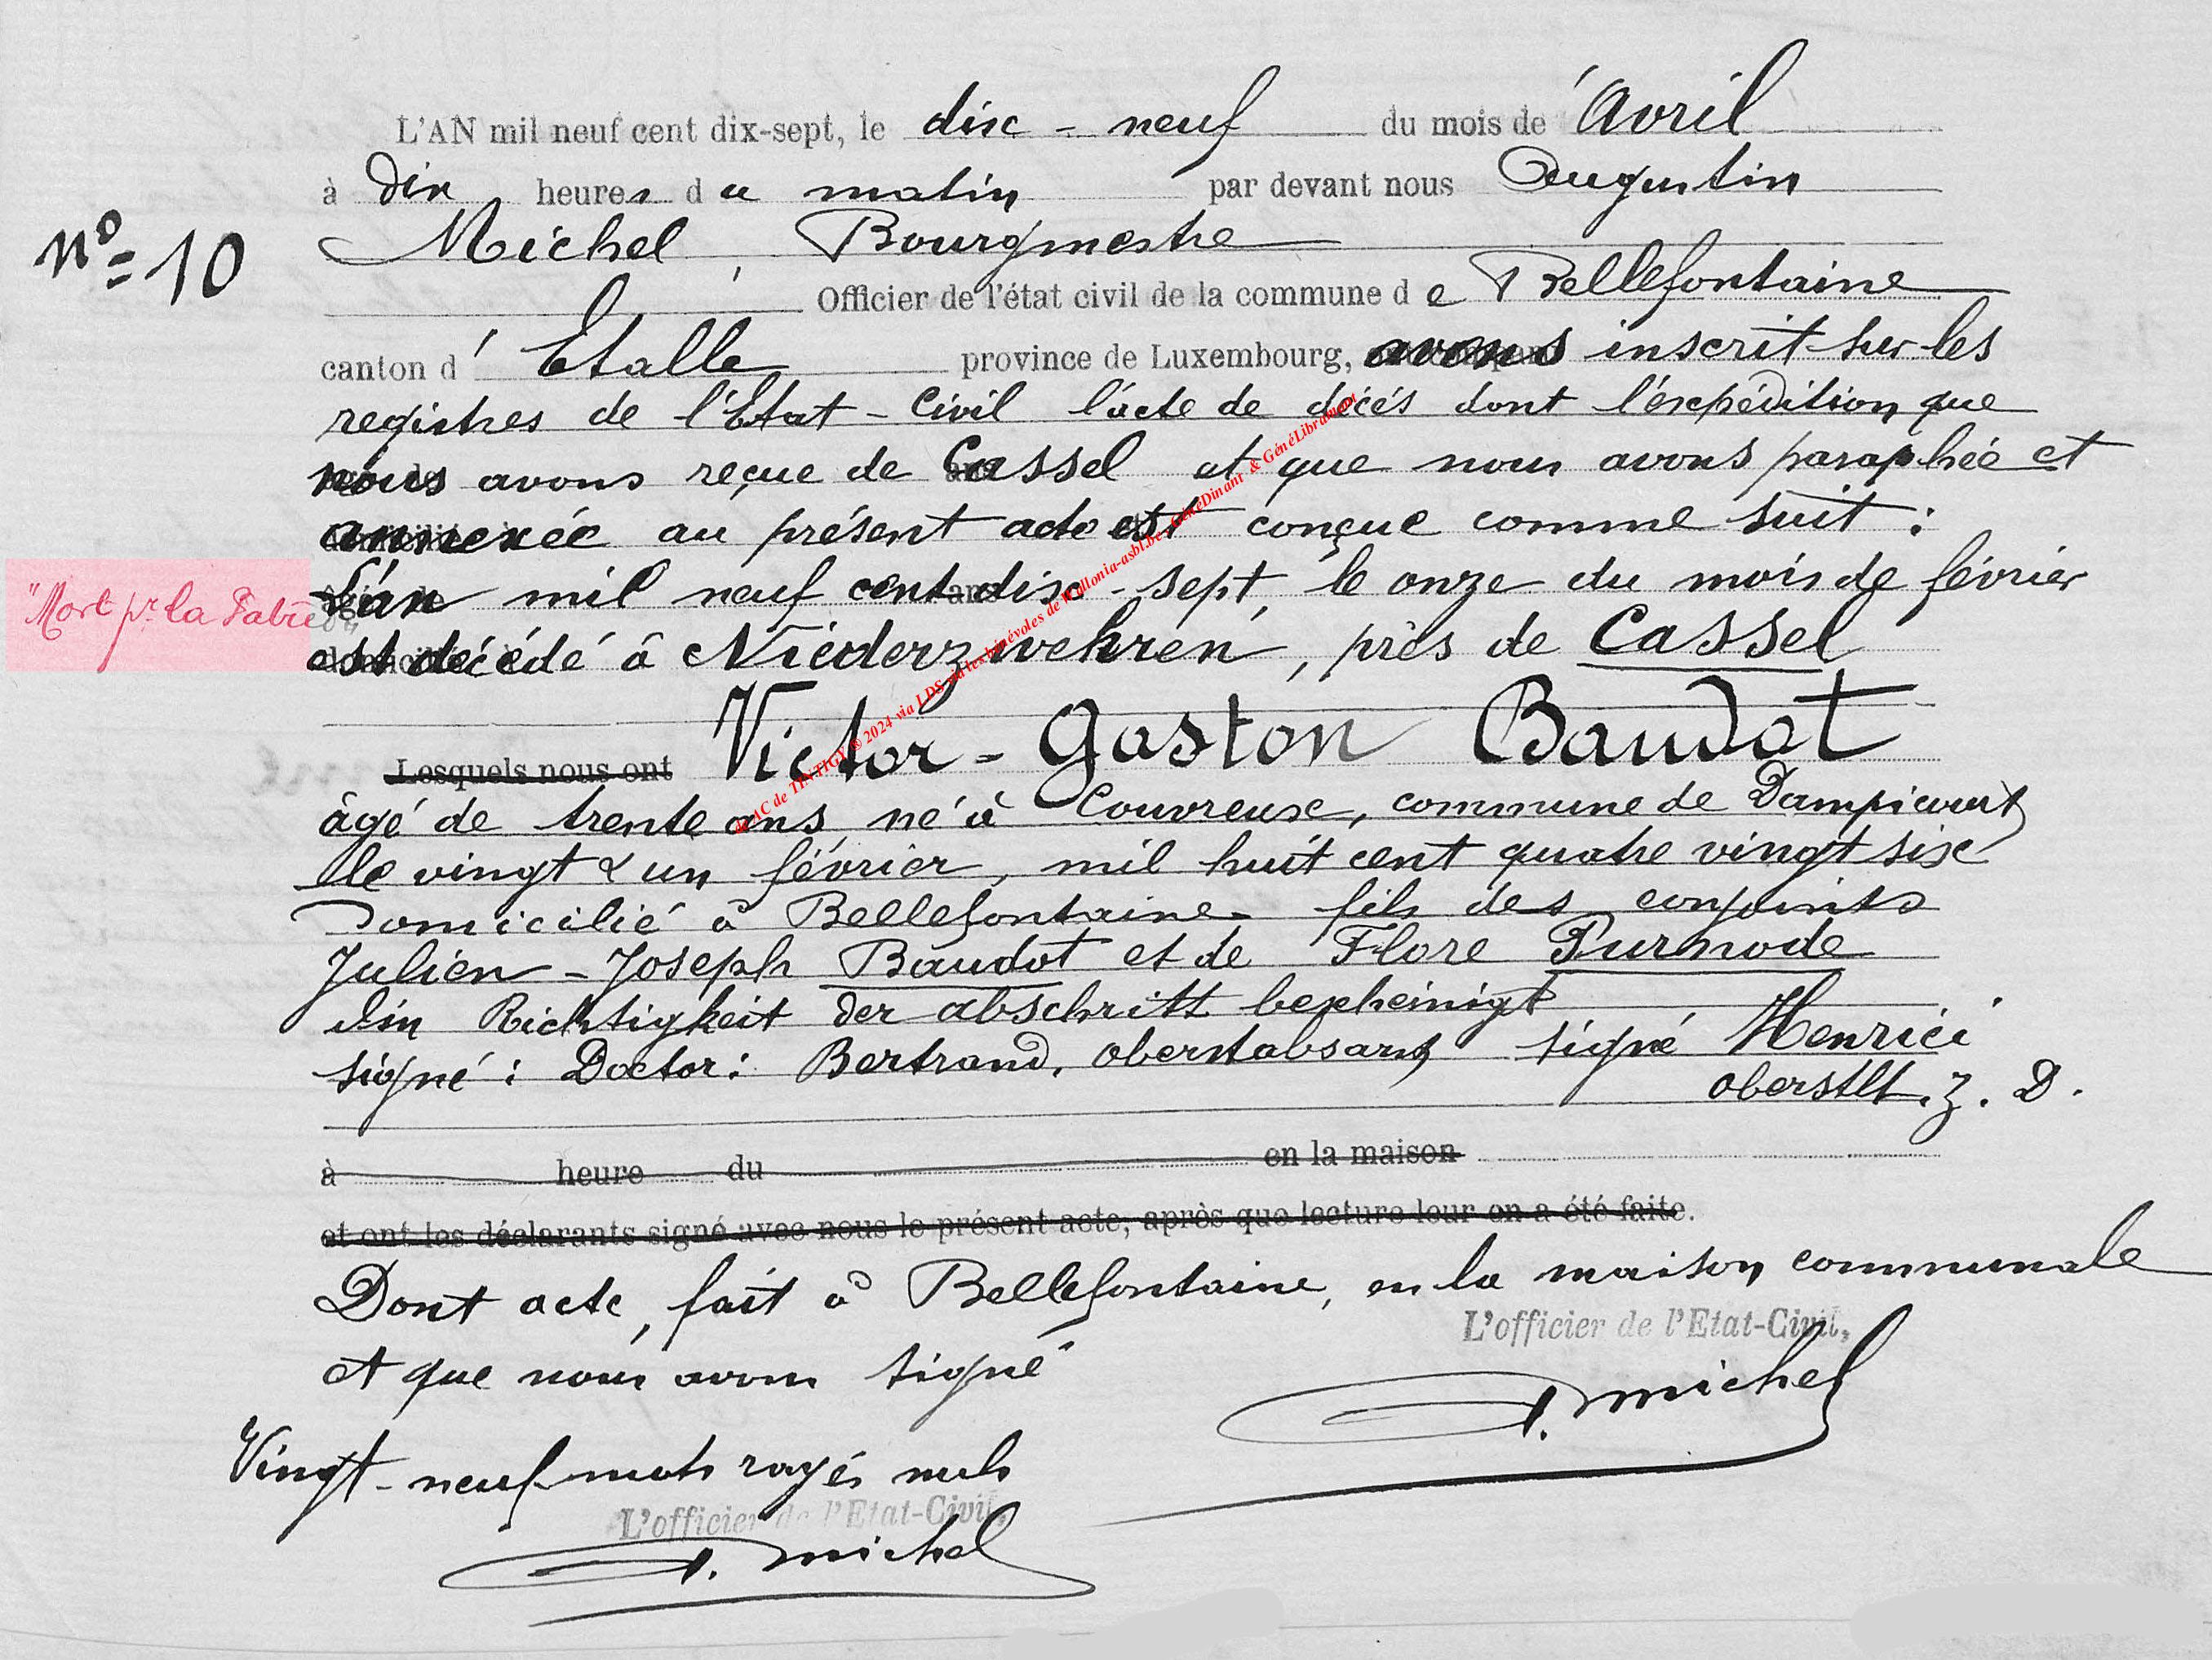 L'AN mil neuf cent dix-sept, le dix-neuf du mois de Avril
à dix heures du matin par devant nous Augustin
Michel, Bourgmestre
N° 10
Officier de l'état civil de la commune de Bellefontaine
canton d'Etalle province de Luxembourg, avons inscrit sur les
registres de l'Etat-Civil l'acte de décès dont l'expédition que
nous avons reçue de Cassel et que nous avons paraphée et
annexée au présent acte est conçue comme suit :
L'an mil neuf cent dix-sept, le onze du mois de février
"Mort pr la Patrie
est décédé à Niederzwehren, près de Cassel
Victor-Gaston Baudot
Lesquels nous ont
âgé de trente ans, né à Couvreux, commune de Dampicourt
le vingt & un février, mil huit cent quatre vingt six
Domicilié à Bellefontaine fils des conjoints
Julien-Joseph Baudot et de Flore Purnode
Din Richtigkeit der abschritt bescheinigt
signé : Doctor : Bertrand, oberstabsarz signé Henrici
oberstlt. z. D.
à heure du en la maison
et ont les déclarants signé avec nous le présent acte, après que lecture leur en a été faite.
Dont acte, fait à Bellefontaine, en la maison communale
L'officier de l'Etat-Civil,
et que nous avons signé
A. Michel
Vingt-neuf mots rayés nuls
L'officier de l'Etat-Civil,
A. Michel
de l'AC de TINTIGNY © 2024 via LDS par les bénévoles de Wallonia-asbl.be, GénéDinant & GénéLibramont